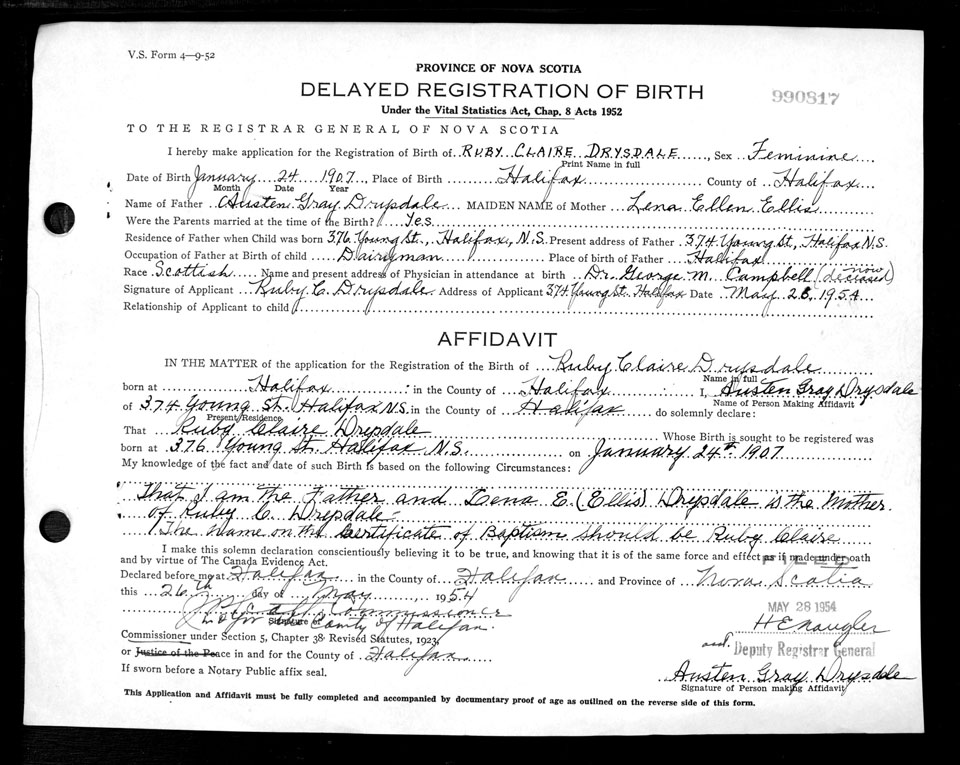 V.S. Form 4—9-52
PROVINCE OF NOVA SCOTIA
DELAYED REGISTRATION OF BIRTH
990817
Under the Vital Statistics Act, Chap. 8 Acts 1952
TO THE REGISTRAR GENERAL OF NOVA SCOTIA
I hereby make application for the Registration of Birth of RUBY CLAIRE DRYSDALE, Sex Feminine
Print Name in full
Date of Birth January 24 1907 Place of Birth Halifax County of Halifax
Month Date Year
Name of Father Austen Gray Drysdale MAIDEN NAME of Mother Lena Ellen Ellis
Were the Parents married at the time of the Birth? Yes
Residence of Father when Child was born 376 Young St., Halifax, N.S. Present address of Father 374 Young St, Halifax N.S.
Occupation of Father at Birth of child Dairyman Place of birth of Father Halifax
Race Scottish Name and present address of Physician in attendance at birth Dr. George M. Campbell (now deceased)
Signature of Applicant Ruby C. Drysdale Address of Applicant 374 Young St. Halifax Date May 28, 1954
Relationship of Applicant to child
AFFIDAVIT
IN THE MATTER of the application for the Registration of the Birth of Ruby Claire Drysdale
Name in full
born at Halifax in the County of Halifax I, Austen Gray Drysdale
Name of Person Making Affidavit
of 374 Young St. Halifax N.S. in the County of Halifax do solemnly declare:
Present Residence
That Ruby Claire Drysdale Whose Birth is sought to be registered was
born at 376 Young St. Halifax N.S. on January 24th 1907
My knowledge of the fact and date of such Birth is based on the following Circumstances:
That I am the Father and Lena E. (Ellis) Drysdale is the Mother
of Ruby C. Drysdale.
The Name on the Certificate of Baptism should be Ruby Claire
I make this solemn declaration conscientiously believing it to be true, and knowing that it is of the same force and effect as if made under oath
and by virtue of The Canada Evidence Act.
FILED
Declared before me at Halifax in the County of Halifax and Province of Nova Scotia
this 26th day of May, 1954
MAY 28 1954
Commissioner
Signature of
for the County of Halifax.
Commissioner under Section 5, Chapter 38 Revised Statutes, 1923,
Deputy Registrar General
or Justice of the Peace in and for the County of Halifax
If sworn before a Notary Public affix seal.
Austen Gray Drysdale
Signature of Person making Affidavit
This Application and Affidavit must be fully completed and accompanied by documentary proof of age as outlined on the reverse side of this form.